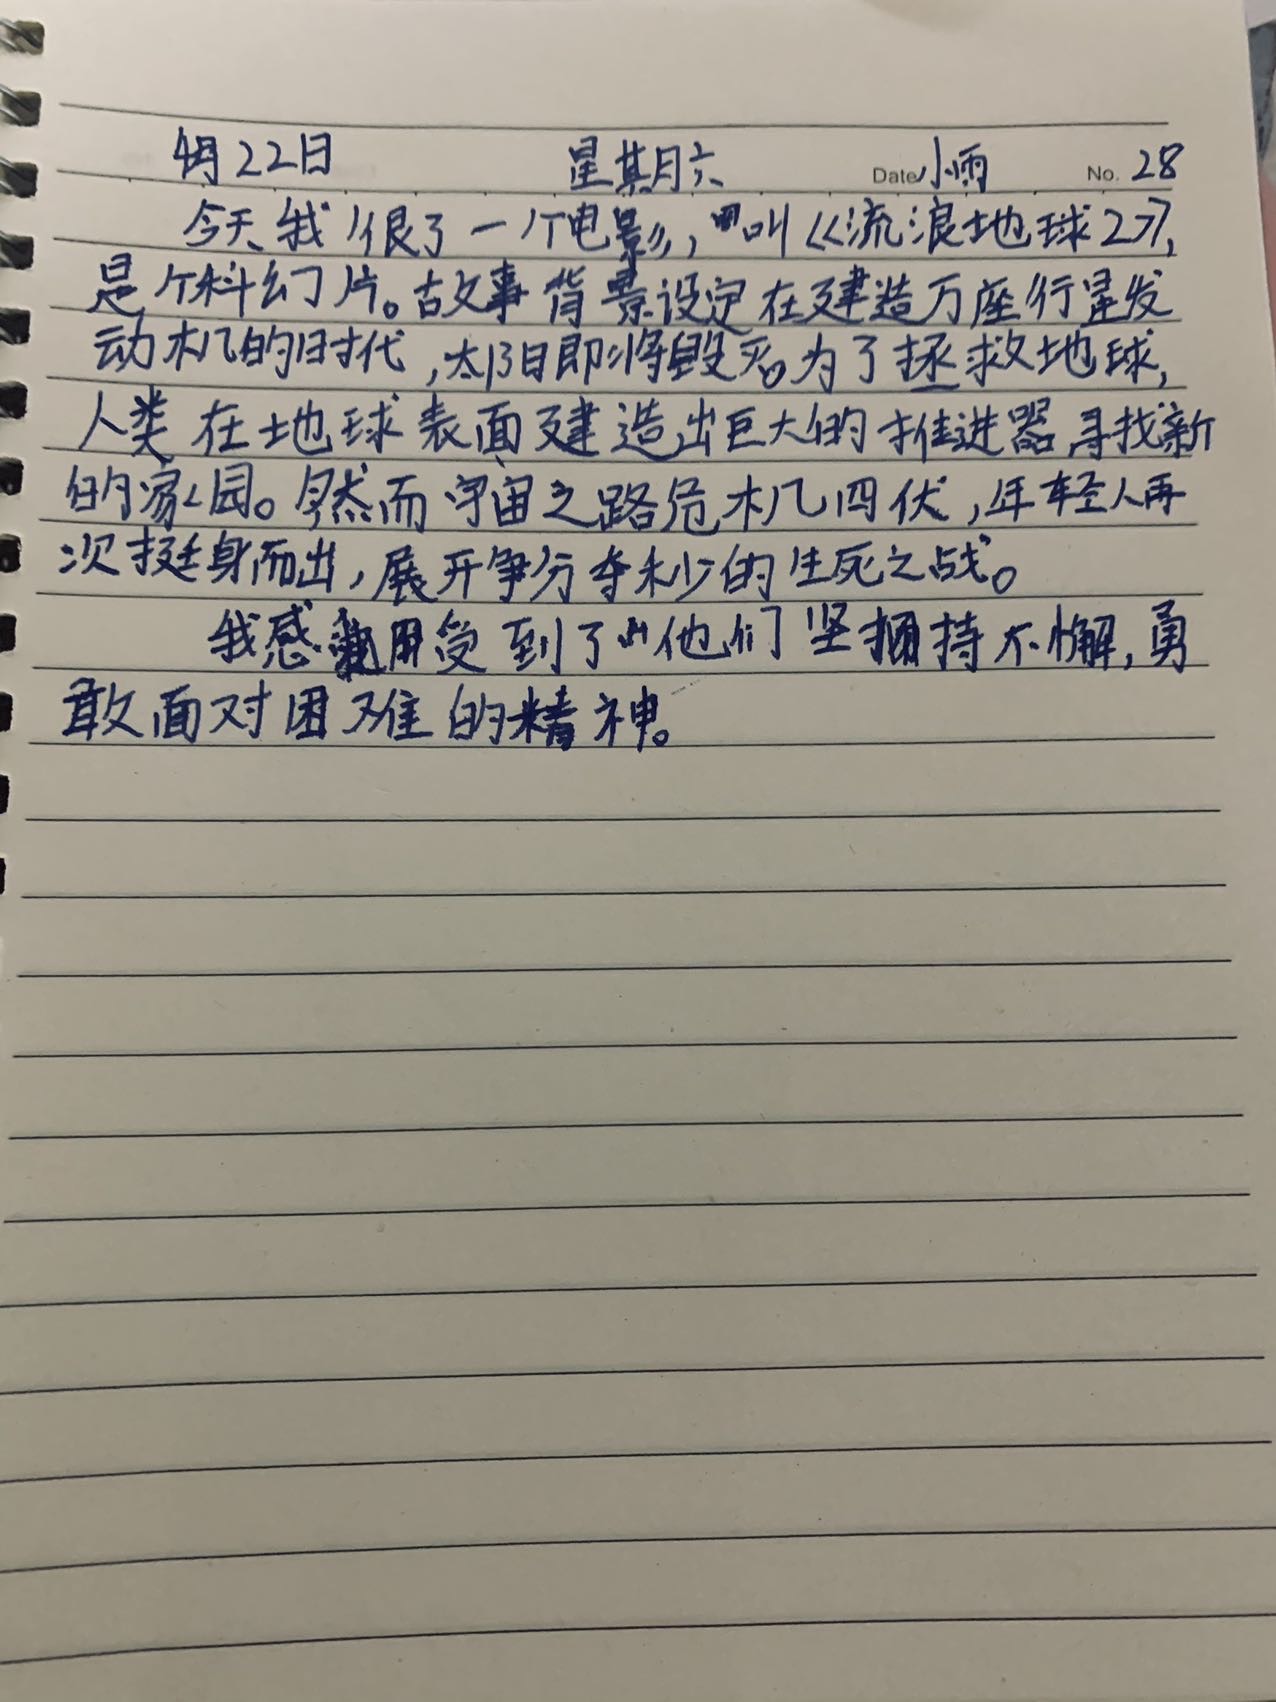 4月22日 星期六 Date 小雨 No. 28
今天我很了一个电影,叫《流浪地球2》,
是个科幻片。故事背景设定在建造万座行星发
动机的时代,太阳即将毁灭。为了拯救地球,
人类在地球表面建造出巨大的推进器寻找新
的家园。然而宇宙之路危机四伏,年轻人再
次挺身而出,展开争分夺秒的生死之战。
我感受到了他们坚持不懈,勇
敢面对困难的精神。